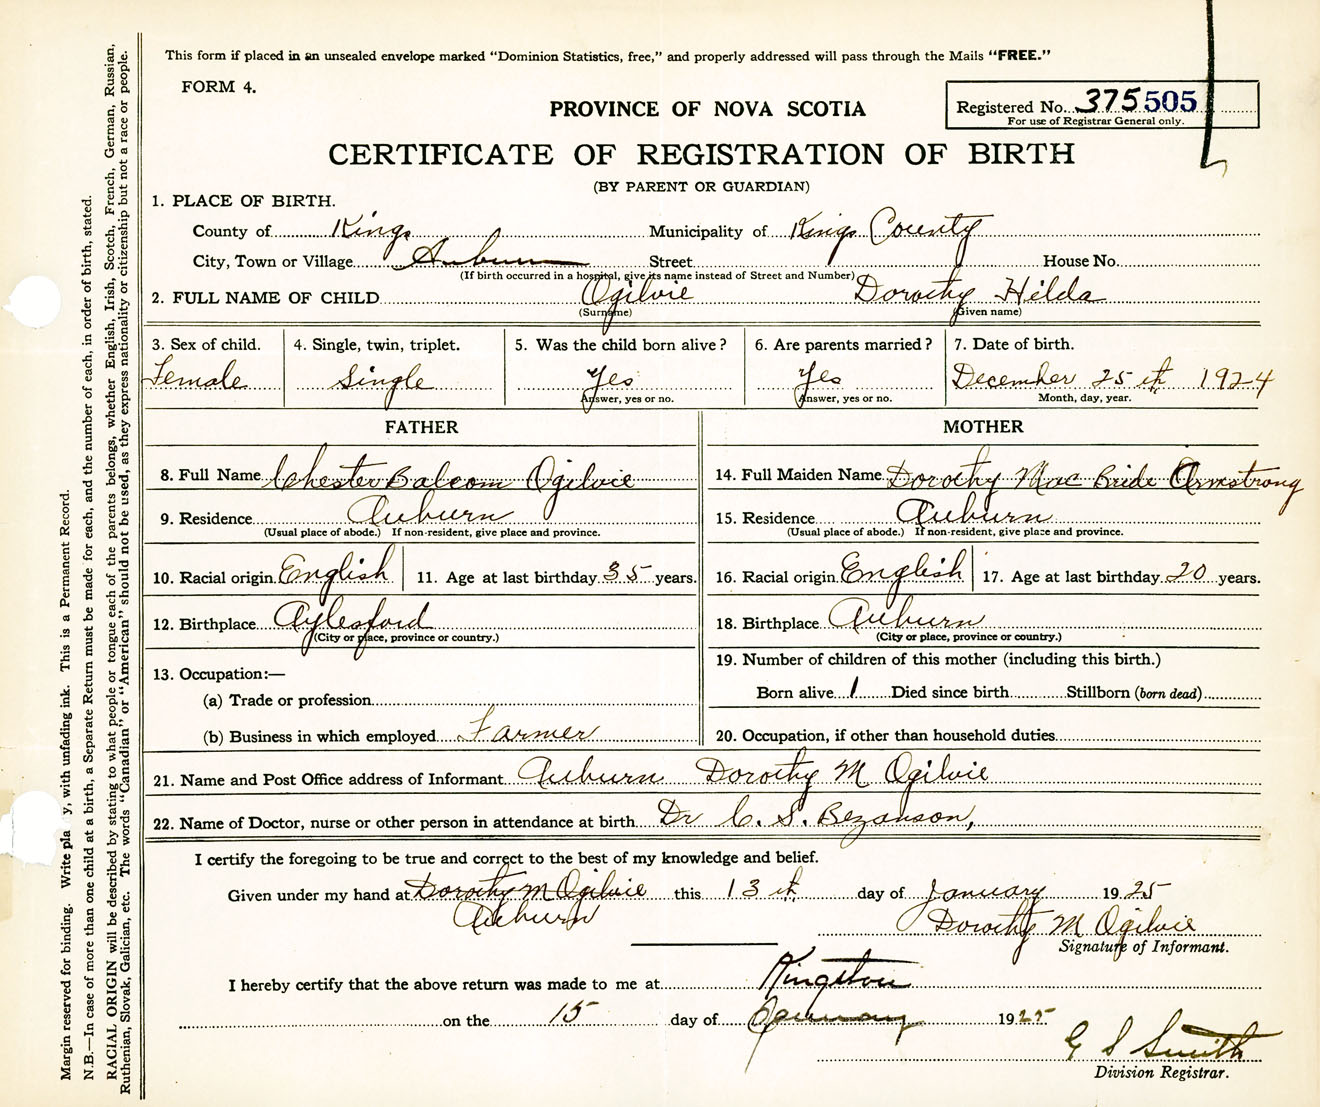 This form if placed in an unsealed envelope marked "Dominion Statistics, free," and properly addressed will pass through the Mails "FREE."
FORM 4.
Registered No. 375505
For use of Registrar General only.
PROVINCE OF NOVA SCOTIA
CERTIFICATE OF REGISTRATION OF BIRTH
(BY PARENT OR GUARDIAN)
1. PLACE OF BIRTH.
County of Kings Municipality of Kings County
City, Town or Village Auburn Street House No.
(If birth occurred in a hospital, give its name instead of Street and Number)
2. FULL NAME OF CHILD Ogilvie Dorothy Hilda
(Surname) (Given name)
3. Sex of child. 4. Single, twin, triplet. 5. Was the child born alive? 6. Are parents married? 7. Date of birth.
Female Single Yes Yes December 25th 1924
Answer, yes or no. Answer, yes or no. Month, day, year.
FATHER MOTHER
8. Full Name Chester Balcom Ogilvie 14. Full Maiden Name Dorothy Mac Bride Armstrong
9. Residence Auburn 15. Residence Auburn
(Usual place of abode.) If non-resident, give place and province. (Usual place of abode.) If non-resident, give place and province.
10. Racial origin English 11. Age at last birthday 35 years. 16. Racial origin English 17. Age at last birthday 20 years.
12. Birthplace Aylesford 18. Birthplace Auburn
(City or place, province or country.) (City or place, province or country.)
13. Occupation:— 19. Number of children of this mother (including this birth.)
(a) Trade or profession Born alive 1 Died since birth Stillborn (born dead)
(b) Business in which employed Farmer 20. Occupation, if other than household duties
21. Name and Post Office address of Informant Auburn Dorothy M Ogilvie
22. Name of Doctor, nurse or other person in attendance at birth Dr C. S. Bezanson,
I certify the foregoing to be true and correct to the best of my knowledge and belief.
Given under my hand at Dorothy M Ogilvie this 13th day of January 1925
Auburn Dorothy M Ogilvie
Signature of Informant.
I hereby certify that the above return was made to me at Kingston
on the 15 day of January 1925
G S Smith
Division Registrar.
Margin reserved for binding. Write pla y, with unfading ink. This is a Permanent Record.
N.B.—In case of more than one child at a birth, a Separate Return must be made for each, and the number of each, in order of birth, stated.
RACIAL ORIGIN will be described by stating to what people or tongue each of the parents belongs, whether English, Irish, Scotch, French, German, Russian,
Ruthenian, Slovak, Galician, etc. The words "Canadian" or "American" should not be used, as they express nationality or citizenship but not a race or people.